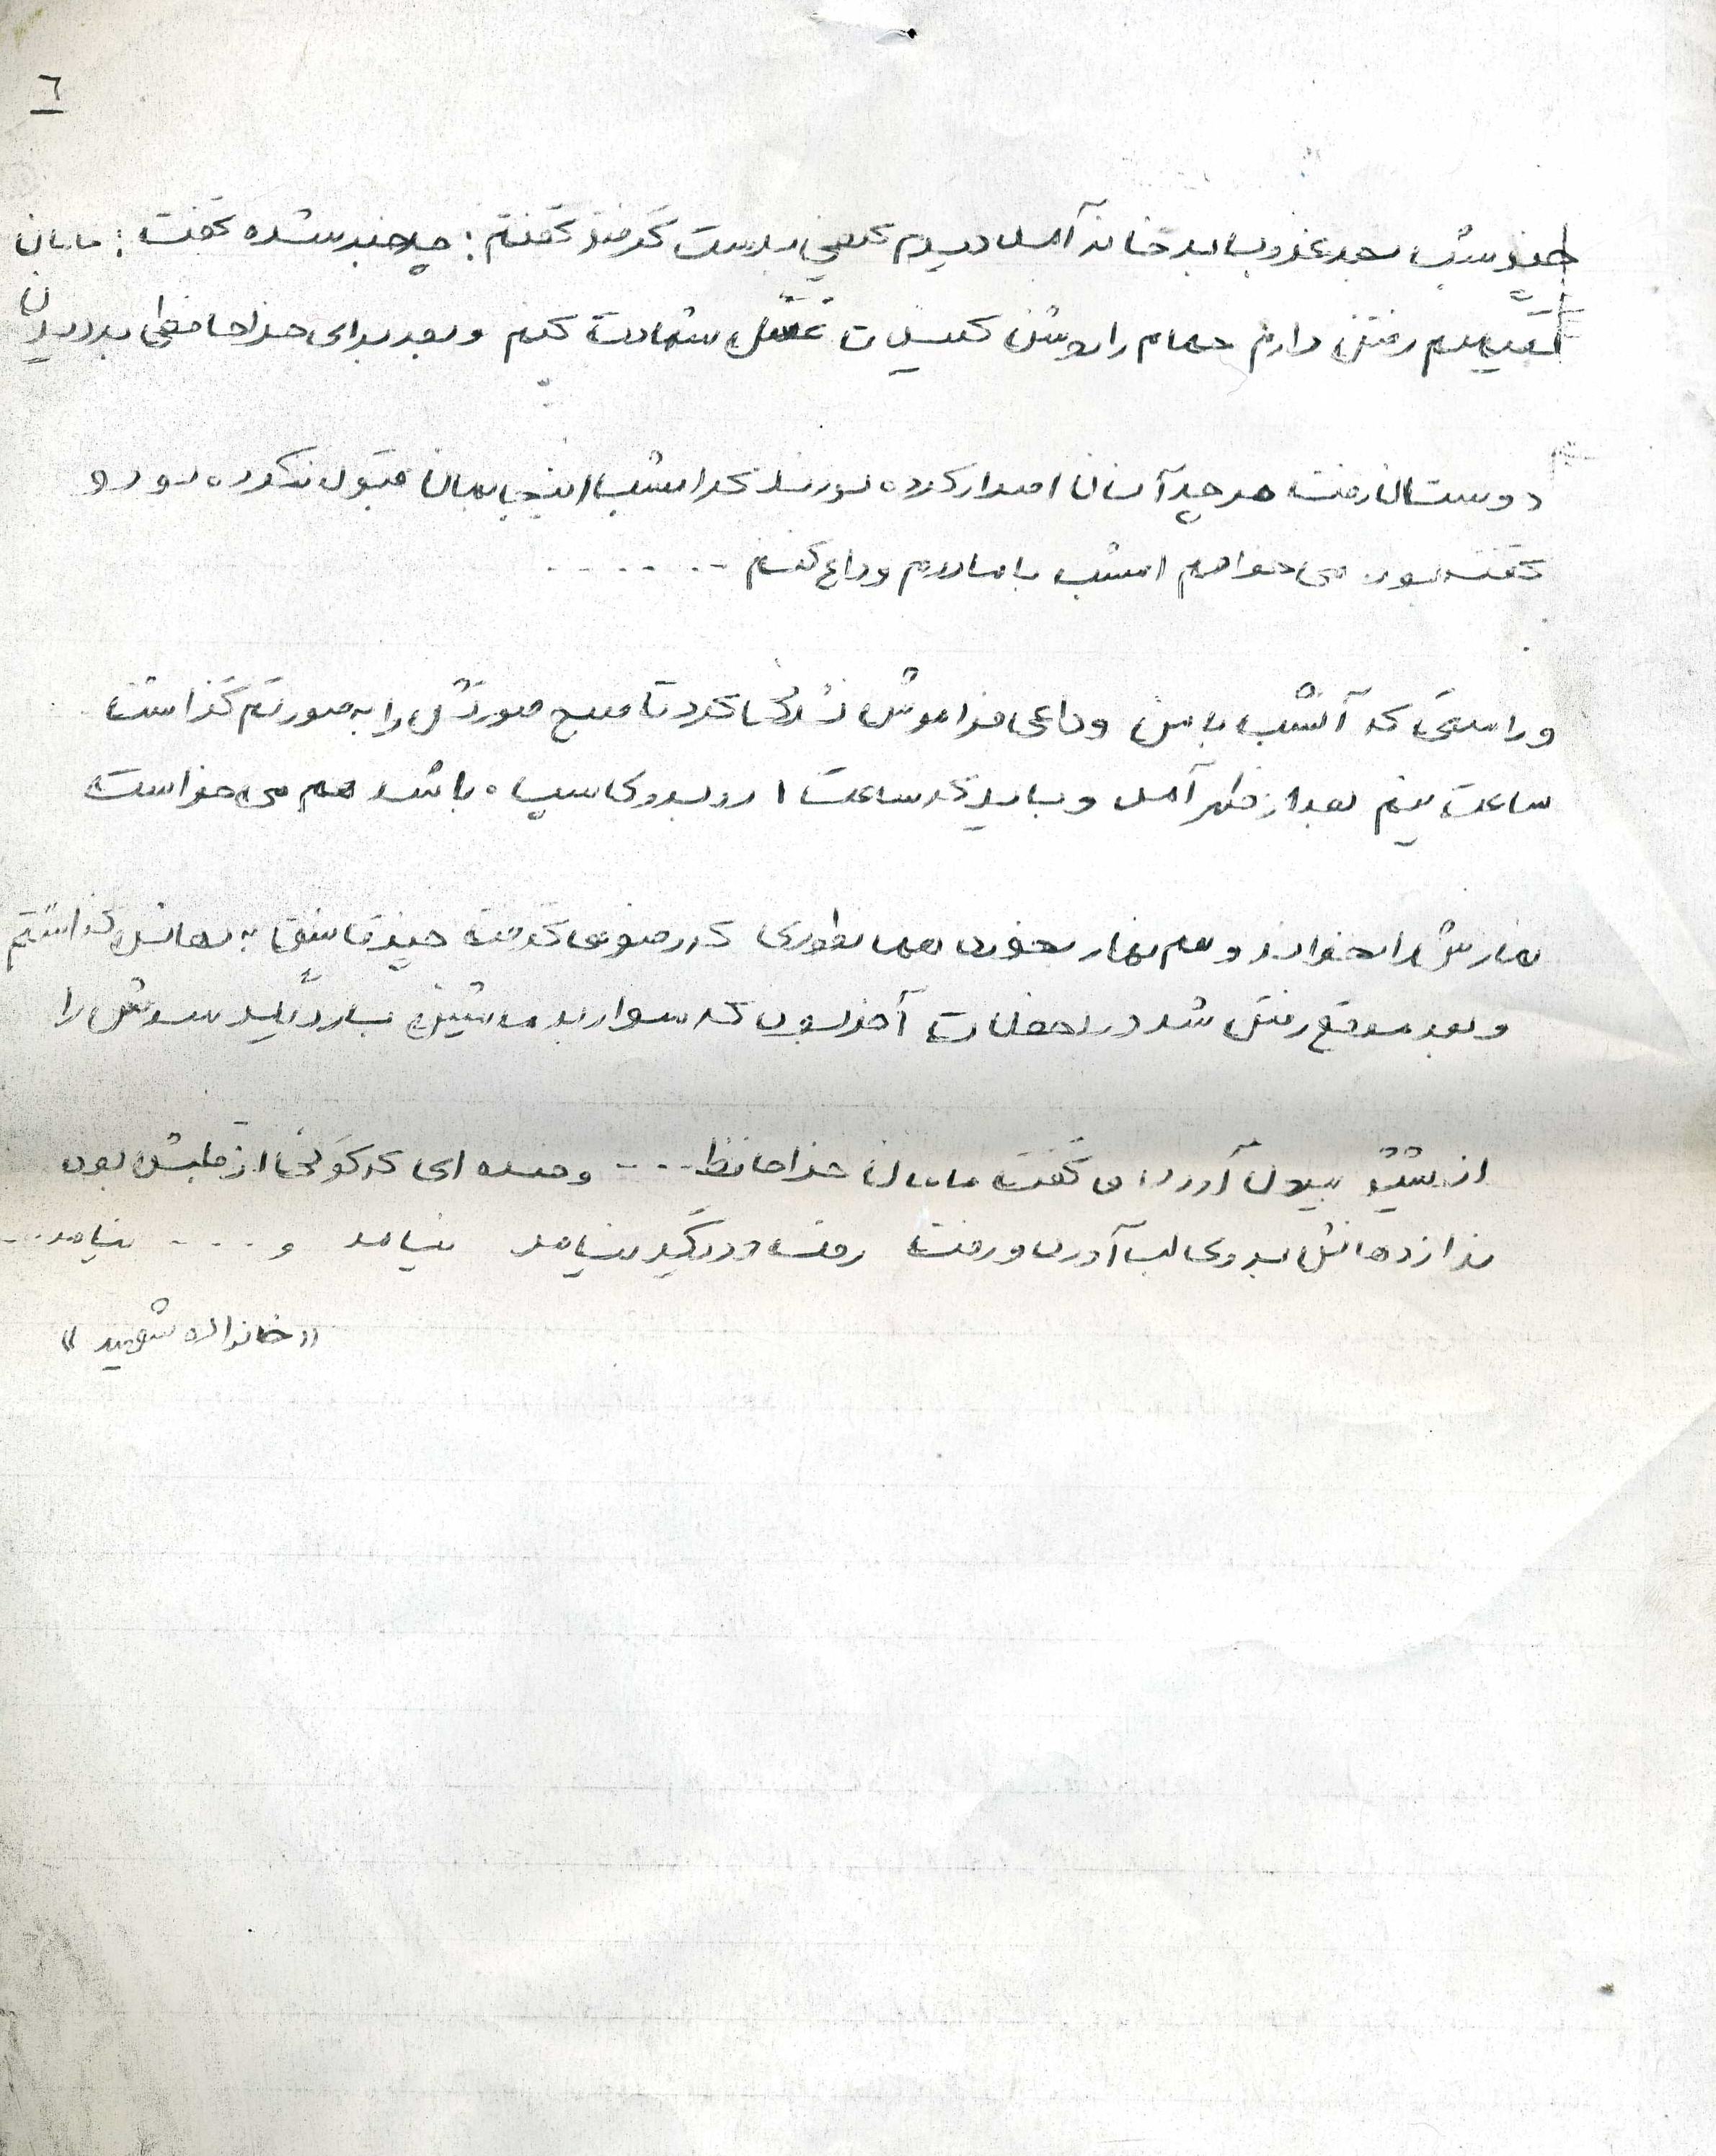 ٦
چند شب بعد غروب به خانه آمد دیدم کیفی بدست گرفته گفتم: چه خبر شده گفت: مامان
تصمیم رفتن دارم حمام را روشن کنید تا غسل شهادت کنم و بعد برای خداحافظی بدیدن
دوستان رفت هر چه آنان اصرار کرده بودند که امشب اینجا بمان قبول نکرده بود و
گفته بود می خواهم امشب با مادرم وداع کنم .......
و راستی که آنشب با من وداعی فراموش نشدنی کرد تا صبح صورتش را به صورتم گذاشت
ساعت نیم بعد از ظهر آمد و باید که ساعت ۱ روبروی سپاه باشد هم می خواست
نمازش را بخواند و هم نهار بخورد همانطوری که وضو می گرفت چند قاشق به دهانش گذاشتم
و بعد موقع رفتن شد در لحظات آخر بود که سوار بر ماشین بار دیگر سرش را
از شیشه بیرون آورد و گفت مامان خداحافظ .... و خنده ای که گوئی از قلبش بود
نه از دهانش بروی لب آورد و رفت رفت و دیگر نیامد نیامد و .... نیامد...
«خانواده شهید»